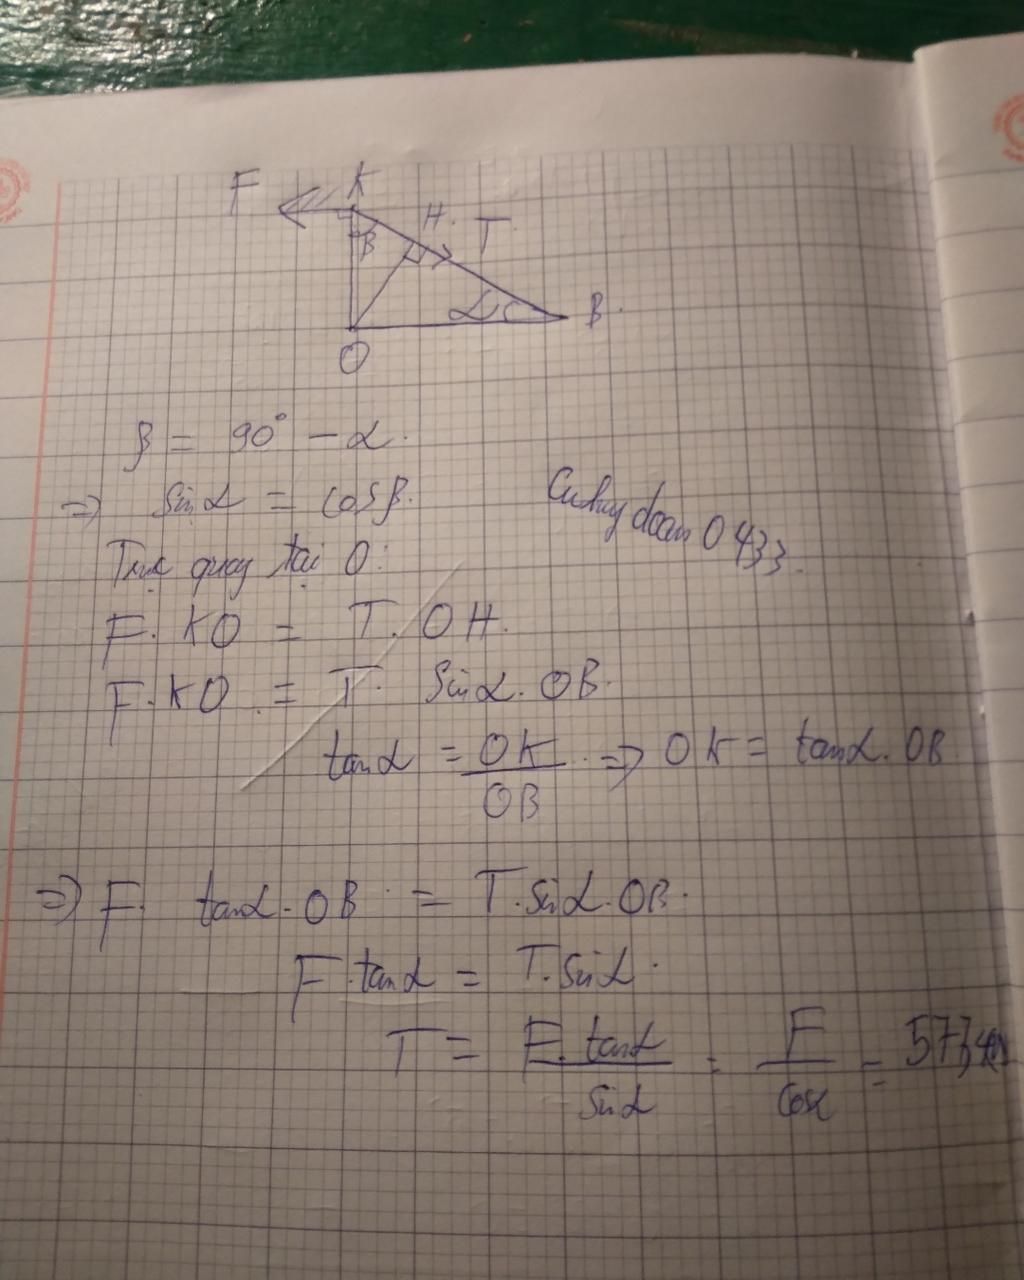 F K
H. T
β
α B.
O
β = 90° - α.
=> Sin α = cos β.
Cuhuydoan0433.
Trục quay tại O:
F. KO = T. OH.
F. KO = T. Sin α. OB.
tan α = OK / OB => OK = tan α. OB
=> F. tan α. OB = T. sin α. OB.
F. tan α = T. sin α.
T = F. tan α / sin α = F / cos α =